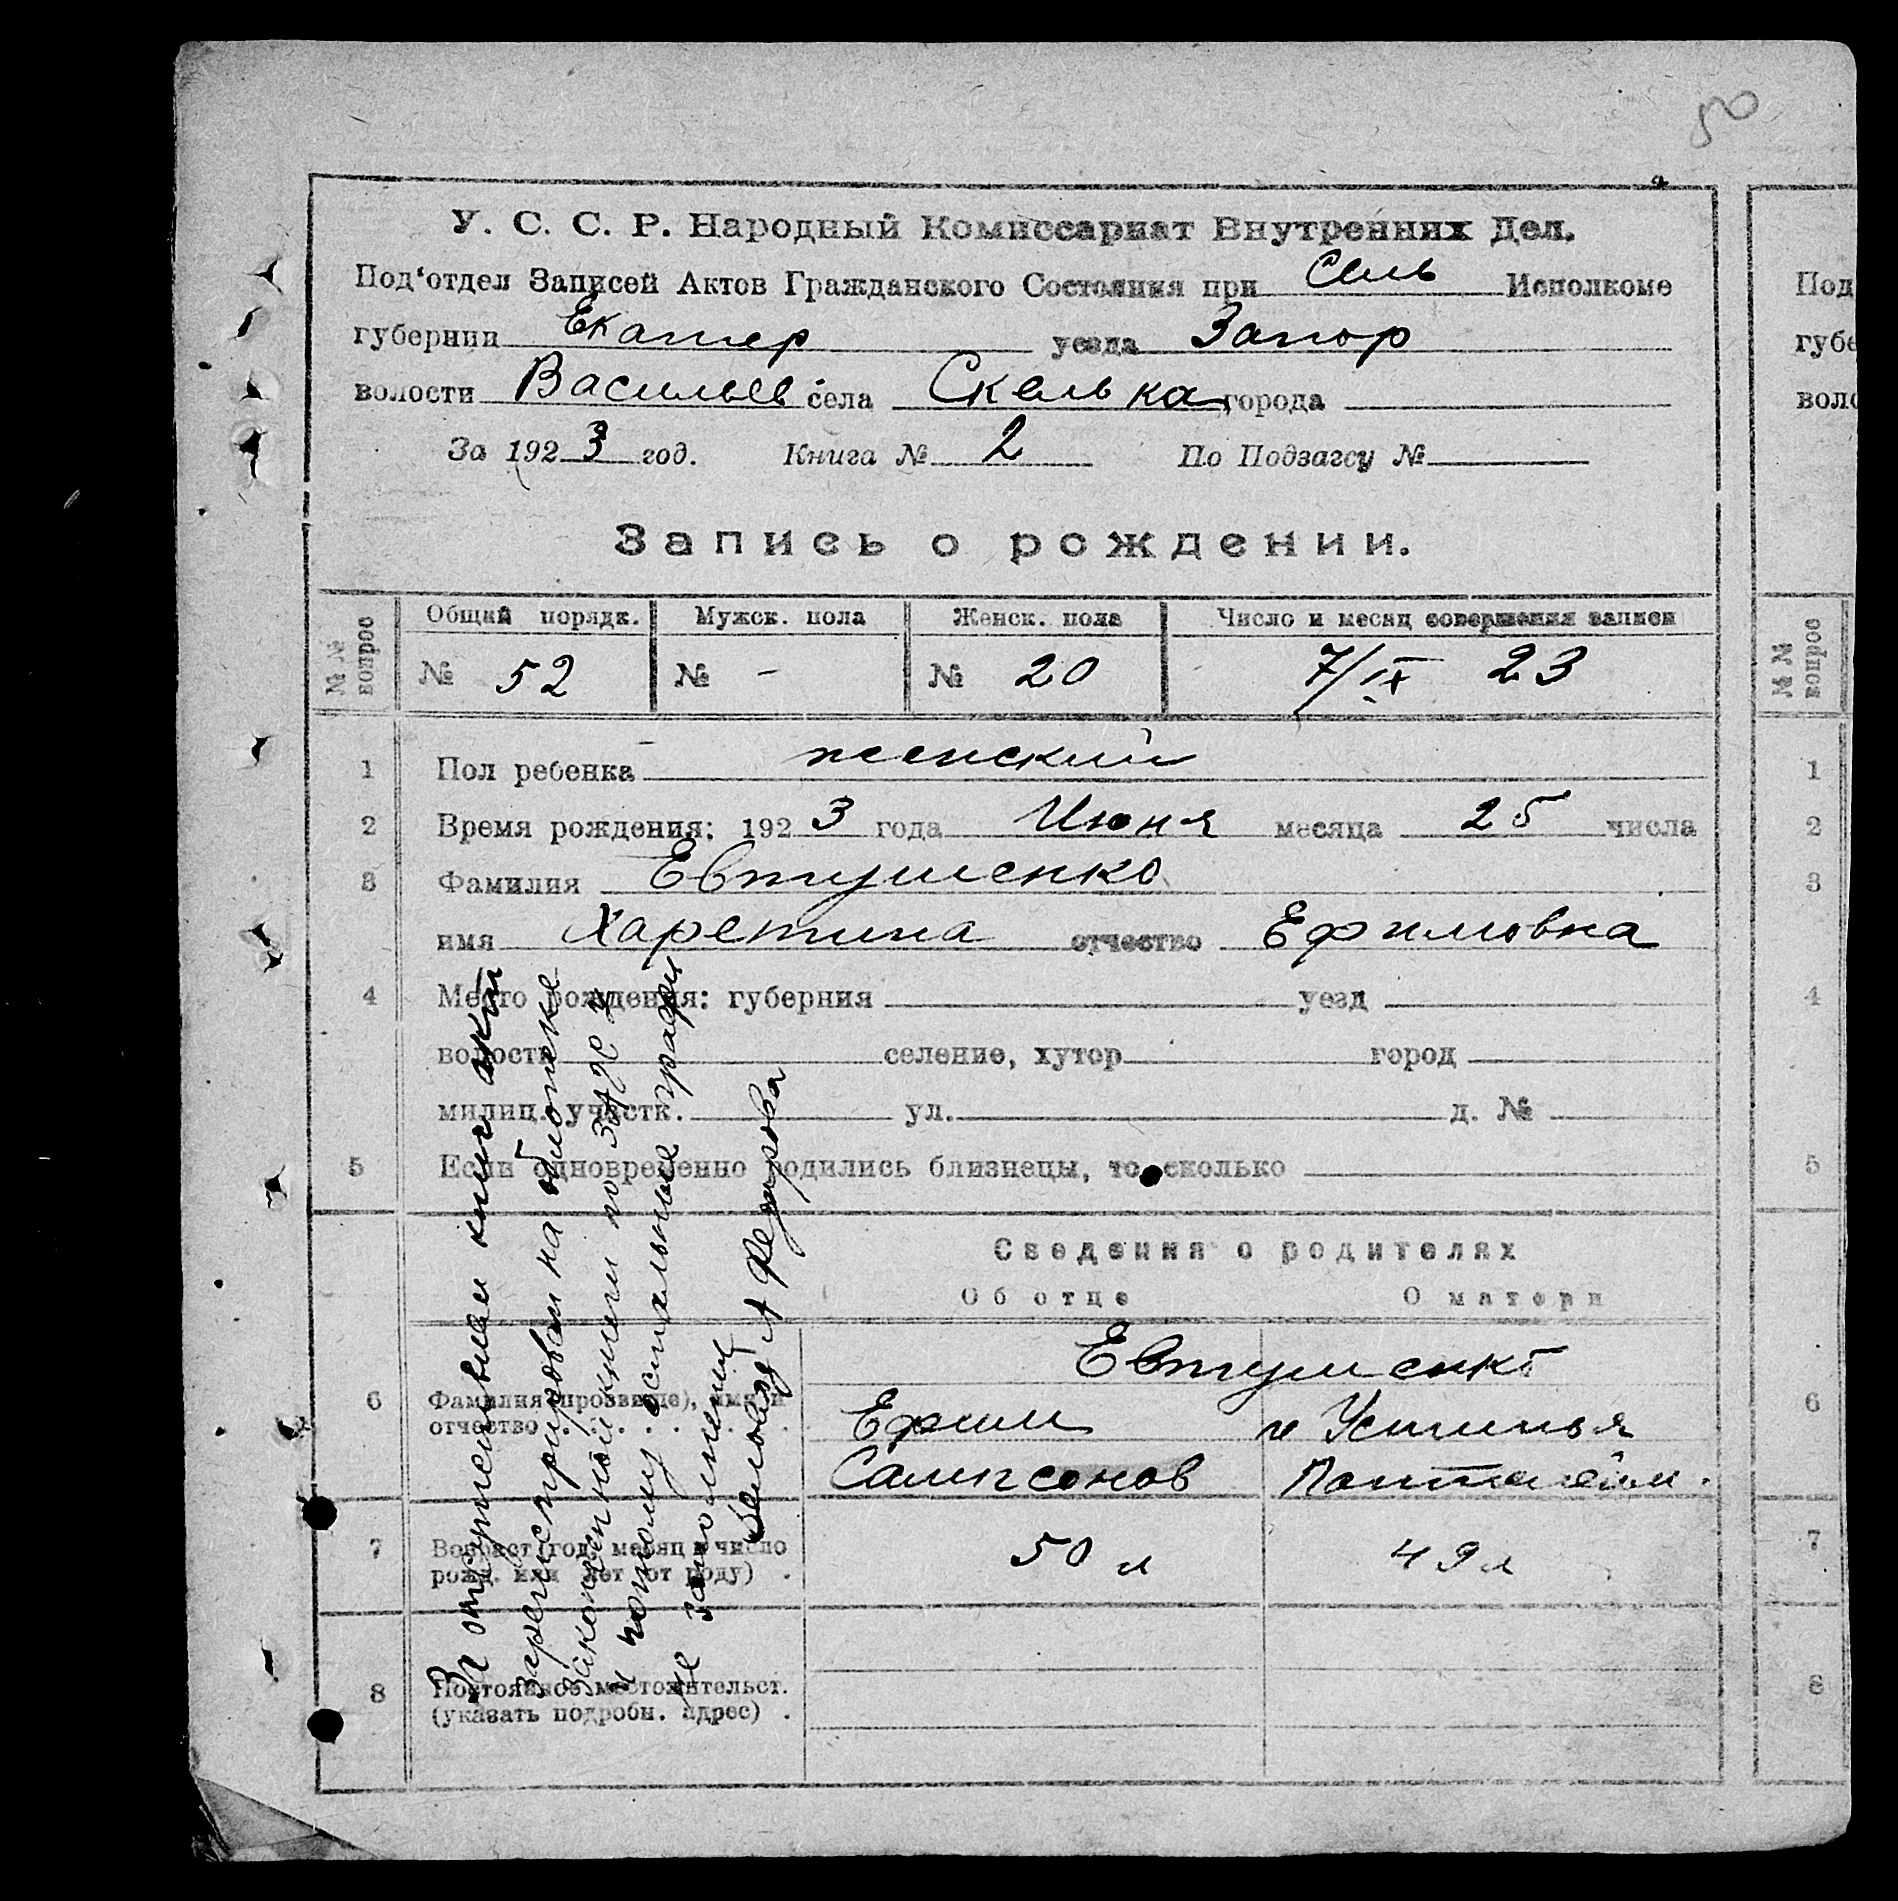 50
У. С. С. Р. Народный Комиссариат Внутренних Дел.
Под‘отдел Записей Актов Гражданского Состояния при Сель Исполкоме
губернии Екатер уезда Запор
волости Васильев села Скелька города
За 1923 год. Книга № 2 По Подзагсу №
Запись о рождении.
№ № вопрос
Общий порядк. Мужск. пола Женск. пола Число и месяц совершения записи
№ 52 № - № 20 7/IX 23
1 Пол ребенка женский
2 Время рождения: 1923 года Июня месяца 25 числа
3 Фамилия Евтушенко
имя Харетина отчество Ефимовна
4 Место рождения: губерния уезд
волость селение, хутор город
милиц. участк. ул. д. №
5 Если одновременно родились близнецы, то сколько
Сведения о родителях
Об отце О матери
Евтушенко
6 Фамилия (прозвище), имя и отчество
Ефим и Устинья
Сампсонов
7 Возраст (год, месяц и число рожд. или лет от роду) 50 л 49 л
8 Постоянное местожительст. (указать подробн. адрес)
За отсутствием книг акт
зарегистрирован на обложке
законченной книги по ЗАГС у
и потому остальные графы
не заполнены
А Федорова
Под
губе
воло
№ № вопрос
1
2
3
4
5
6
7
8